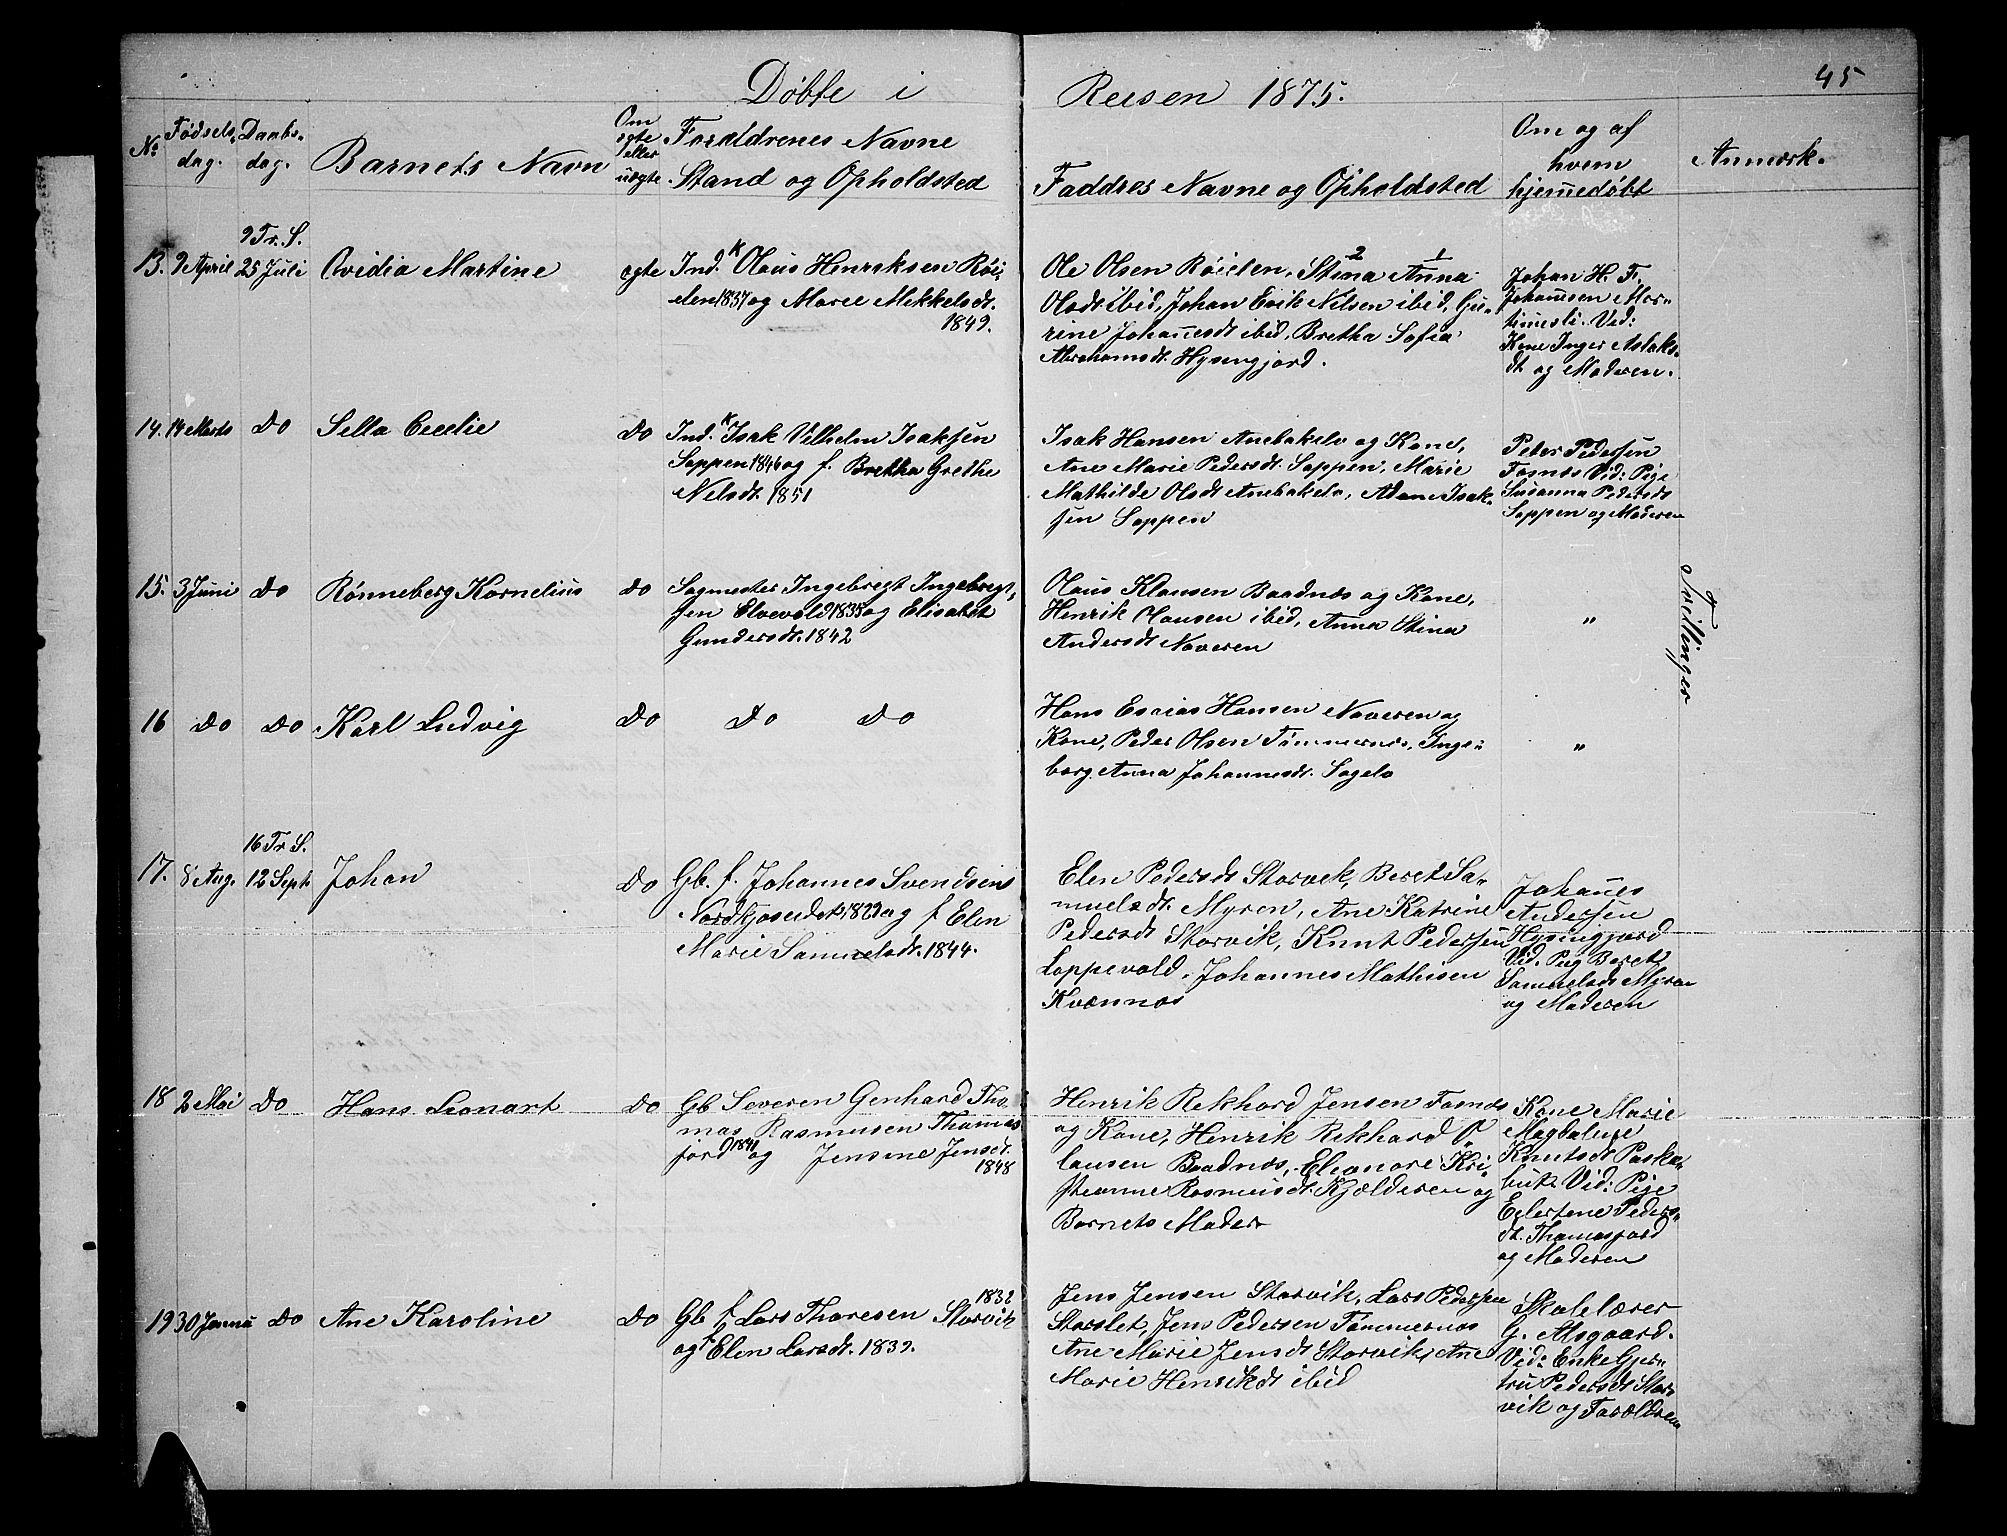 45
Døbte i Reisen 1875.
No
Fødsels-
dag.
Daabs-
dag.
Barnets Navn
Om
ægte
eller
uægte.
Forældrenes Navne
Stand og Opholdsted
Faddres Navne og Opholdsted
Om og af
hvem
hjemmedøbt
Anmærk.
13. 9 April
9 Tr. S.
25 Juli
Ovidia Martine
ægte
Ind. K Olaus Henriksen Röi-
elen 1837 og Marie Mikkelsdt.
1849.
Ole Olsen Röielen, Stina 2 Anna 1
Olsdt ibid, Johan Erik Nilsen ibid, Gu-
rine Johannesdt ibid, Bretha Sofia
Abrahamsdt. Hysingjord.
Johan H. F.
Johannesen Mar-
tinesli. Vid:
Kone Inger Aslaks-
dt. og Moderen.
14. 14 Marts Do Sella Cecelie Do
Ind. K Isak Vilhelm Isaksen
Sappen 1846 og f. Bretha Grethe
Nilsdt. 1851
Isak Hansen Anebakelv og Kone,
Ane Marie Pedersdt. Sappen, Marie
Mathilde Olsdt Anebakelv, Adam Isak-
sen Sappen
Peter Pedersen
Tornæs Vid: Pige
Susanna Pedersdt
Sappen og Moderen
15. 3 Juni Do Rønneberg Kornelius Do
Sagmester Ingebregt Ingebregt-
sen Elvevold 1835 og Elisabet
Gundersdt. 1842
Olaus Klausen Baadnæs og Kone,
Henrik Clausen ibid, Anna Stina
Andersdt Naveren
"
Tvillinger
16 Do Do Karl Ludvig Do Do Do
Hans Esaias Hansen Naveren og
Kone, Peder Olsen Tömmernæs, Inge-
borg Anna Johannesdt. Sagelv
"
17. 8 Aug.
16 Tr S.
12 Sept.
Johan
Do
Gb. f. Johannes Svendsen
Nordkjoseidet 1829 og f Elen
Marie Samuelsdt. 1844.
Elen Pedersdt Storvik, Beret Sa-
muelsdt. Myren, Ane Katrine
Pedersdt Storvik, Knut Pedersen
Loppevold, Johannes Mathisen
Kvænnæs
Johannes
Andersen
Hysingjord
Vid. Pig Beret
Samuelsdt Myren
og Moderen
18 2 Mai Do Hans Leonart Do
Gb Severen Genhard Tho-
mas Rasmusen Thamas
fjord 1840 og Jensine Jensdt.
1848
Henrik Rekhard Jensen Tornæs
og Kone, Henrik Rikhard O-
lausen Baadnæs, Eleonore Kri-
stianne Rasmusdt. Kjælderen og
Barnets Moder
Kone Marie
Magdalene
Knutsdt Paska-
buk. Vid: Pige
Eilertine Peders-
dt. Thomasfjord
og Moderen
19 30 Janua Do Ane Karoline Do
Gb f Lars Thoresen Storvik
1832
og f Elen Larsdt. 1839.
Jens Jensen Storvik, Lars Pedersen
Storslet, Jens Pedersen Tömmernæs
Ane Marie Jensdt Storvik, Ane
Marie Henrikdt ibid
Skolelærer
G. Alsgaard.
Vid: Enke Gjer-
tru Pedersdt Stor-
vik og Forældrene